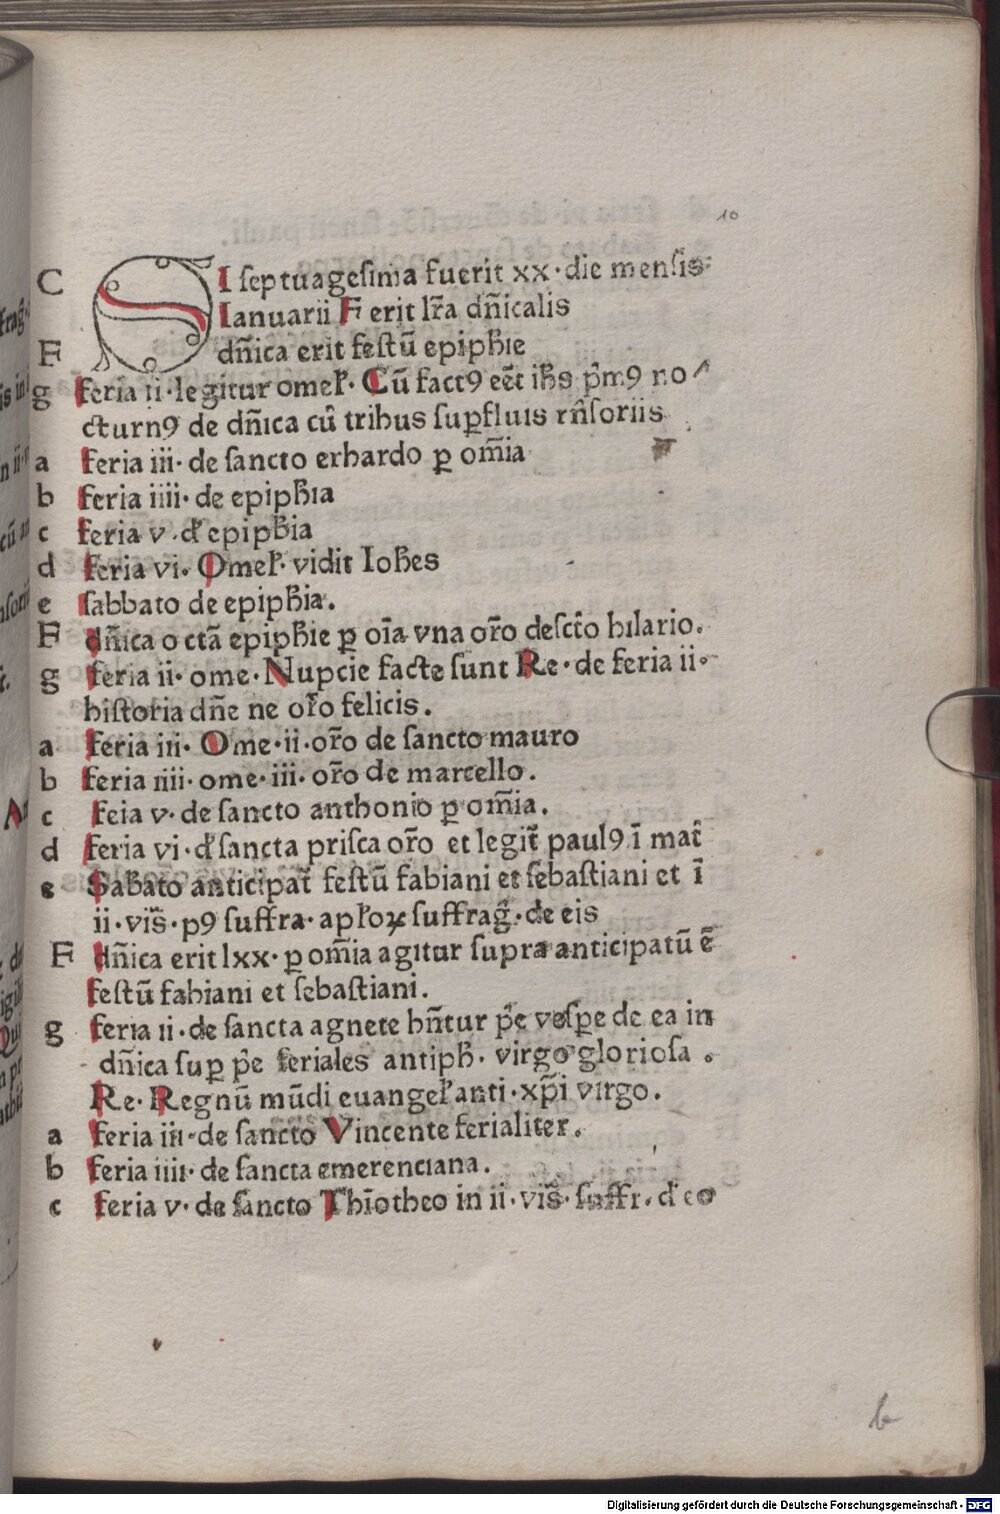 10
C SI septuagesima fuerit xx·die mensis
Ianuarii F erit lr̃a dñicalis
F dñica erit festū epiph̄ie
g feria ii·legitur omel᷑· Cū fact9 eēt ih̄s pm̄9 no⸗
cturn9 de dñica cū tribus suꝑfluis rñsoriis
a feria iii· de sancto erhardo ꝑ om̄ia
b feria iiii· de epiph̄ia
c feria v·d᷑ epiph̄ia
d feria vi. Omel᷑· vidit Ioh̄es
e sabbato de epiph̄ia.
F dñica octā epiph̄ie ꝑ oīa vna or̃o descto hilario.
g feria ii· ome·Nupcie facte sunt Re·de feria ii·
historia dñe ne or̃o felicis.
a feria iii· Ome·ii·or̃o de sancto mauro
b feria iiii·ome·iii·or̃o de marcello.
c feia v·de sancto anthonio ꝑ om̄ia.
d feria vi·d᷑ sancta prisca or̃o et legit᷑ paul9 ī mat᷑
e Sabato anticipat᷑ festū fabiani et sebastiani et ī
ii·vis̄·p9 suffra·apl᷑oꝝ suffrag᷑·de eis
F dñica erit lxx·ꝑ om̄ia agitur supra anticipatū ē
festū fabiani et sebastiani.
g feria ii·de sancta agnete hñtur pē vesꝑe de ea in
dñica suꝑ pē feriales antiph̄· virgo gloriosa.
Re·Regnū mūdi euangel᷑ anti·xp̄i virgo.
a feria iii·de sancto Vincente ferialiter.
b feria iiii·de sancta emerenciana.
c feria v·de sancto Thīotheo in ii·vis̄·suffr.d᷑ eo
b
Digitalisierung gefördert durch die Deutsche Forschungsgemeinschaft - DFG